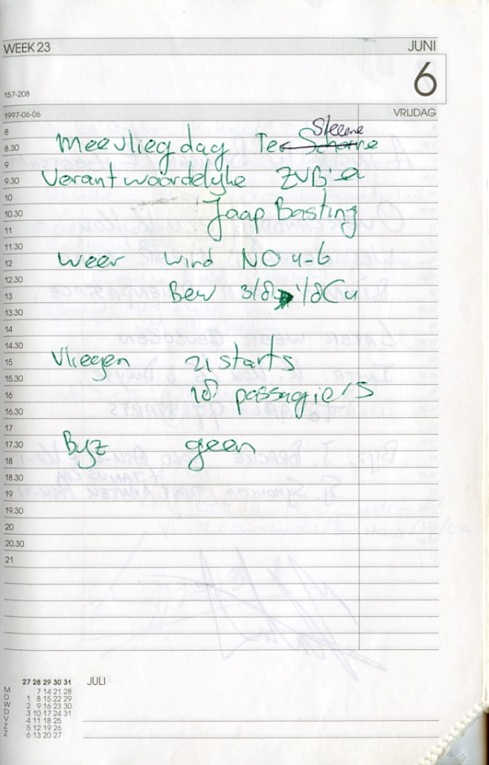 WEEK 23 JUNI
6
157-208
1997-06-06 VRIJDAG
8
Steene
8.30 Meevliegdag Ter Schorne
9
9.30 Verantwoordelijke ZVB'er
10
10.30 Jaap Basting
11
11.30
12 Weer wind NO 4-6
12.30
13 Bew 3/8 1/8Cu
13.30
14
14.30
15 Vliegen 21 starts
15.30
16 18 passagiers
16.30
17
17.30 Byz geen
18
18.30
19
19.30
20
20.30
21
27 28 29 30 31 JULI
M 7 14 21 28
D 1 8 15 22 29
W 2 9 16 23 30
D 3 10 17 24 31
V 4 11 18 25
Z 5 12 19 26
Z 6 13 20 27